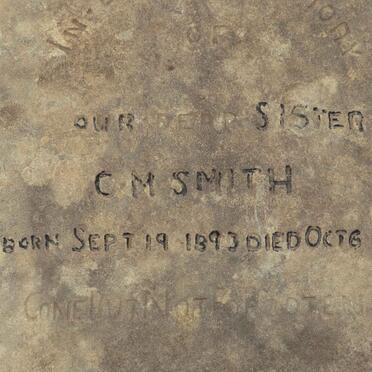 OF
OUR DEAR SISTER
C M SMITH
BORN SEPT 19 1893 DIED OCT 6
GONE BUT NOT FORGOTEN